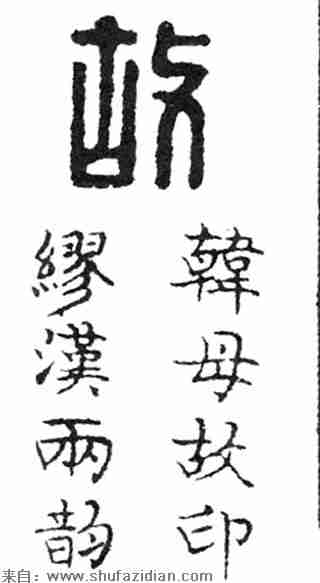 故
韓母故印
繆漢兩韵
来自：www.shufazidian.com